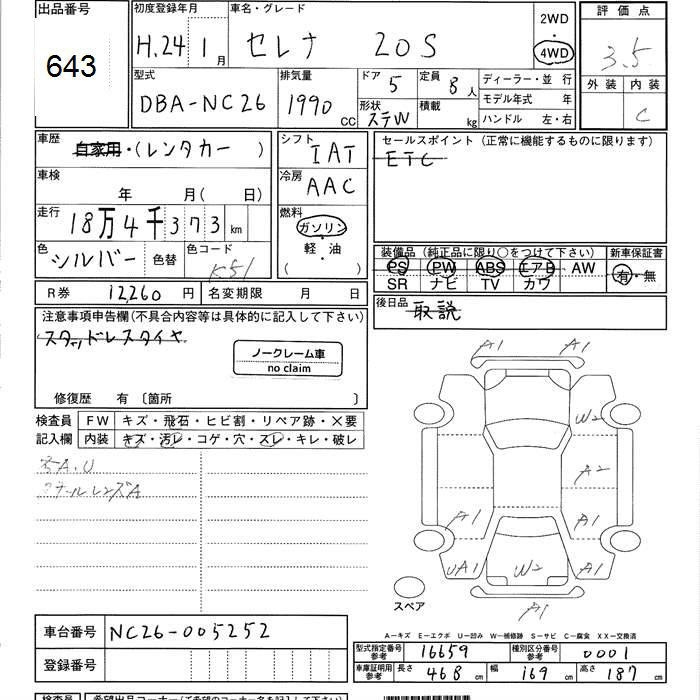 出品番号
643
初度登録年月
H.24 1月
車名・グレード
セレナ 20S
2WD
4WD
評価点
3.5
外装 内装
C
型式
DBA-NC26
排気量
1990 CC
ドア 5
定員 8人
形状 ステW
積載 kg
ディーラー・並行
モデル年式 年
ハンドル 左・右
車歴
自家用・(レンタカー)
車検
年 月(日)
走行
18万4千373km
色
シルバー
色替
色コード
K51
シフト
IAT
冷房
AAC
燃料
ガソリン
軽・油
( )
セールスポイント(正常に機能するものに限ります)
ETC
装備品(純正品に限り○をつけて下さい)
PS PW ABS エアB AW
SR ナビ TV カワ
新車保証書
有・無
後日品
取説
R券 12,260円
名変期限 月 日
注意事項申告欄(不具合内容等は具体的に記入して下さい)
スタッドレスタイヤ
ノークレーム車
no claim
修復歴 有〔箇所 〕
検査員
記入欄
FW キズ・飛石・ヒビ割・リペア跡・×要
内装 キズ・汚レ・コゲ・穴・スレ・キレ・破レ
A.U
テールレンズA
A1 A1
W2
A2
A1 A1
UA1 W2 A1
A1
スペア
A─キズ E─エクボ U─凹み W─補修跡 S─サビ C─腐食 XX─交換済
車台番号 NC26-005252
登録番号
型式指定番号
参考
16659
種別区分番号
参考
0001
車庫証明用
参考
長さ 468cm
幅 169cm
高さ 187cm
検査員
希望出品コーナー(ご希望のコーナー名を記入して下さい)